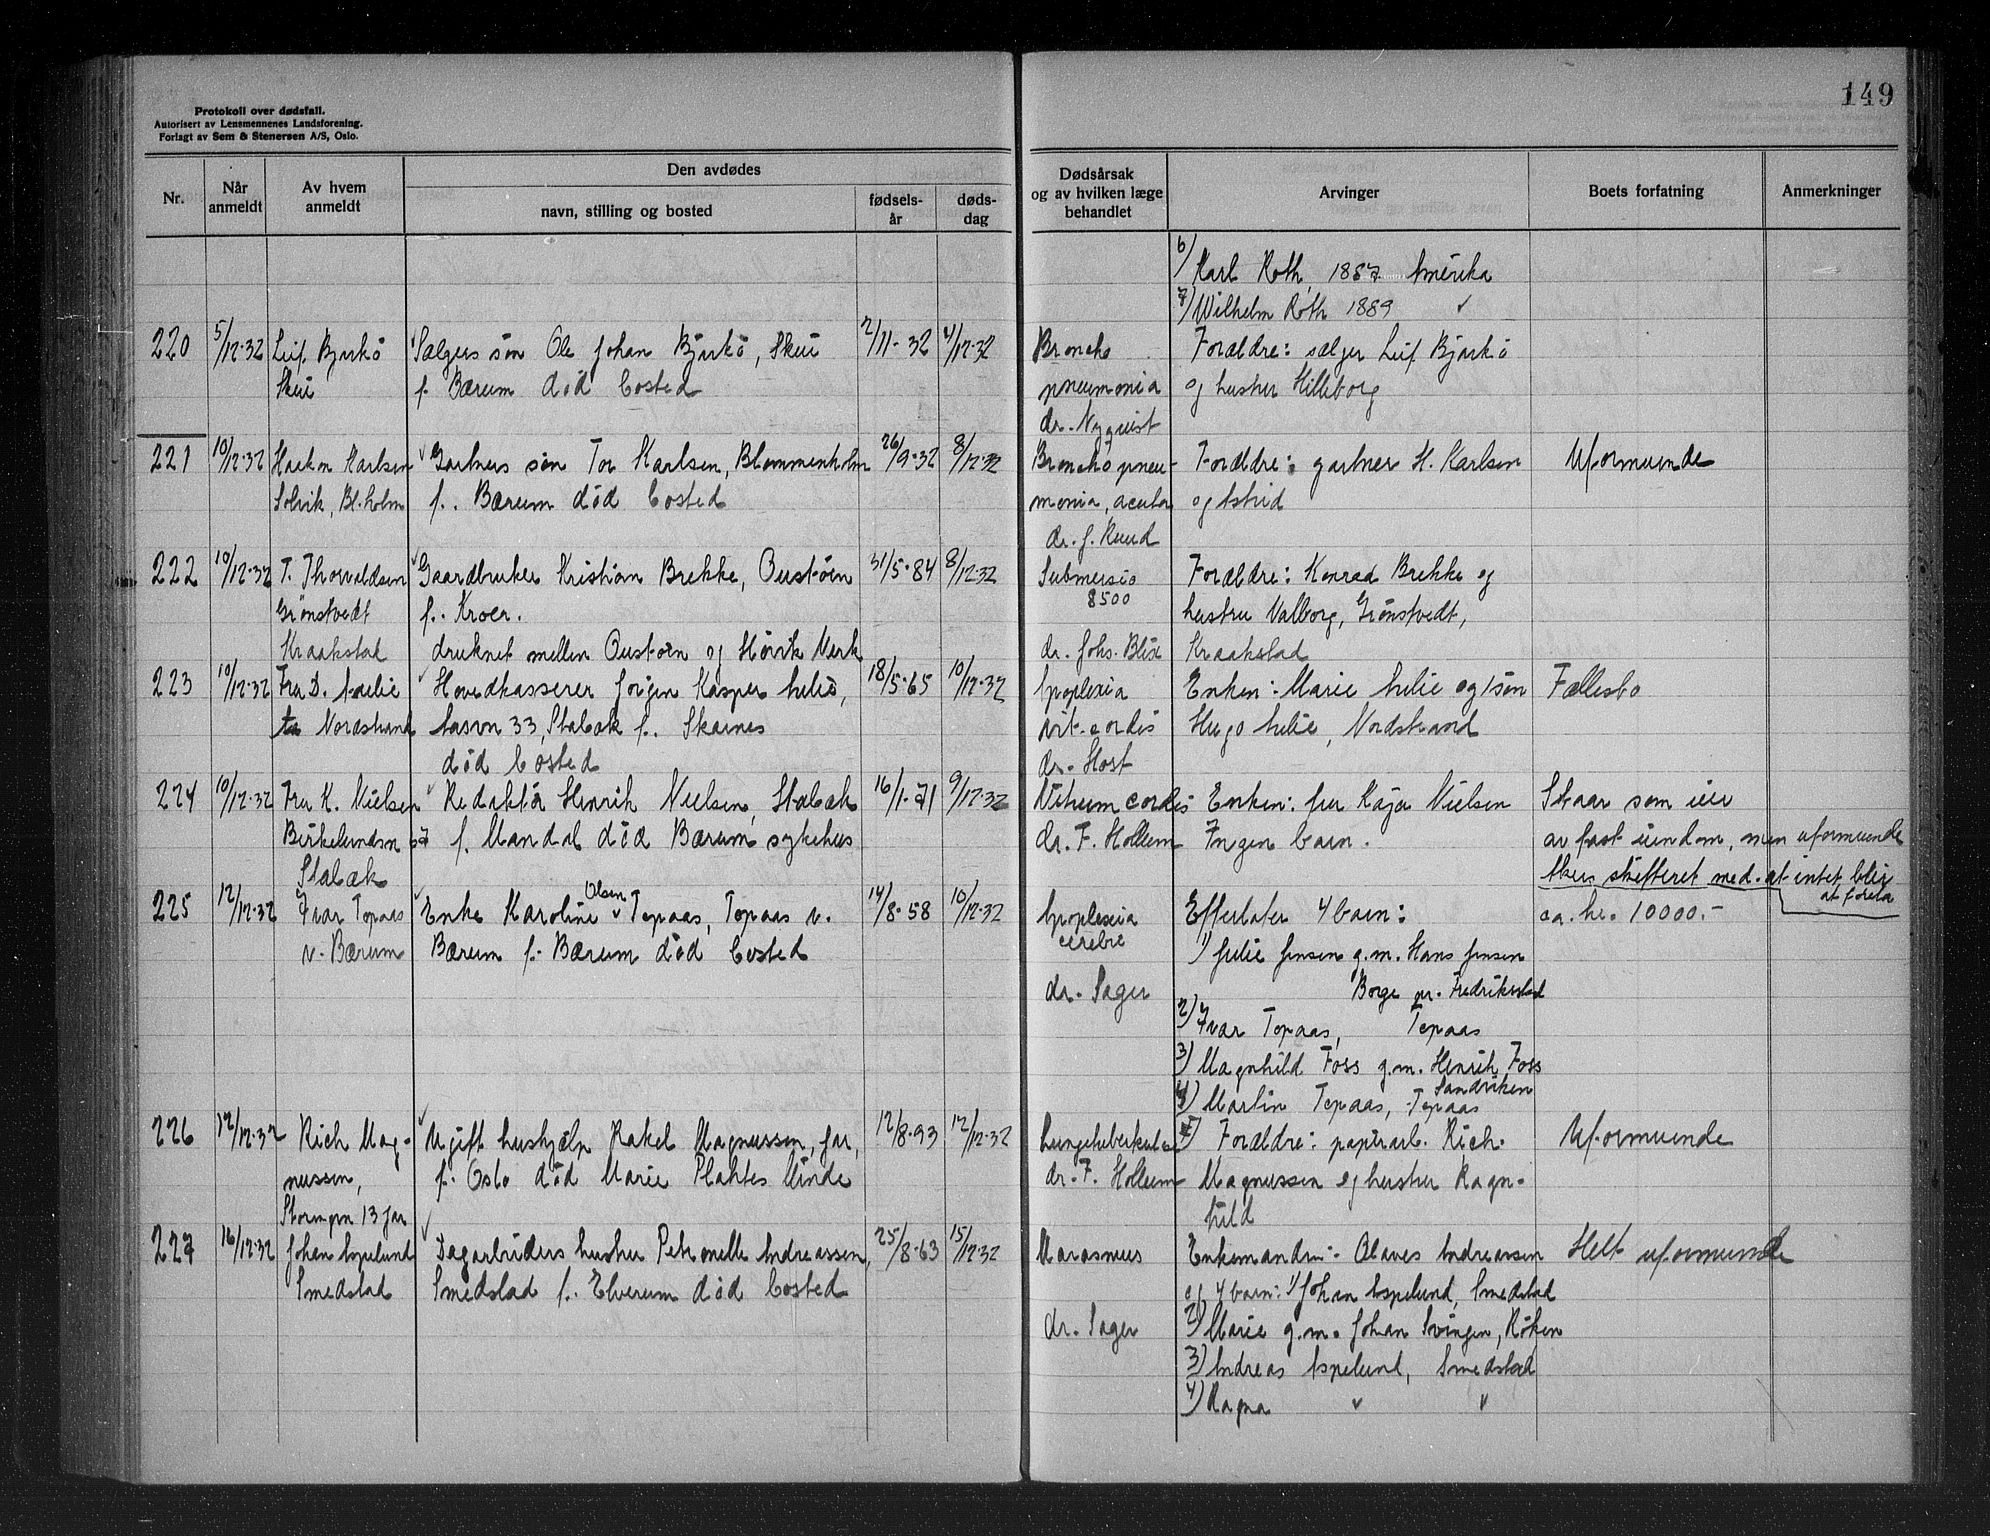 149
Protokoll over dødsfall.
Autorisert av Lensmennenes Landsforening.
Forlagt av Sem & Stenersen A/S, Oslo.
Nr.
Når anmeldt
Av hvem anmeldt
Den avdødes
navn, stilling og bosted
fødsels-år
døds-dag
Dødsårsak og av hvilken læge behandlet
Arvinger
Boets forfatning
Anmerkninger
6) Karl Roth, 1887 Amerika
7) Wilhelm Roth 1889 "
220 5/12-32 Leif Bjarkö Sælgers søn Ole Johan Bjarkö, Skui 2/11-32 4/12-32 Broncho Forældre: sælger Leif Bjarkö
Skui f. Bærum död bosted pneumonia og hustru Hilleborg
dr. Nyquist
221 10/12-32 Haakon Karlsen Gartners søn Tor Karlsen, Blommenholm 26/9-32 8/12-32 Bronchopneu- Forældre: gartner H. Karlsen Uformuende
Solvik, Bl.holm f. Bærum död bosted monia, acuta og Astrid
dr. J. Ruud
222 10/12-32 T. Thorvaldsen Gaardbruker Kristian Brekke, Oustöen 31/5-84 8/12-32 Submersio Forældre: Konrad Brekke og
Grönstvedt f. Kroer. 8500 hustru Valborg, Grönstvedt,
Kraakstad druknet mellem Oustöen og Hövik Verk dr. Johs. Blix Kraakstad
223 10/12-32 Fru D. Aulie Hovedkasserer Jörgen Kasper Aulie, 18/5-65 10/12-32 Apoplexia Enken: Marie Aulie og 1 sön Fællesbo
Nordstrand 33, Stabæk f. Skarnes cordis Hugo Aulie, Nordstrand
död bosted dr. Host
224 10/12-32 Fru K. Nielsen Redaktör Henrik Nielsen, Stabæk 16/1-71 9/12-32 Vitium cordis Enken: fru Kaja Nielsen Staar som eier
Birkelundsn 67 f. Mandal död Bærum sykehus dr. F. Hollum Ingen barn. av fast eiendom, men uformuende
Stabæk skifteret med. at intet blir
at foreta
225 12/12-32 Ivar Topaas Enke Karoline Olsen Topaas, Topaas v. 14/8-58 10/12-32 Apoplexia Efterlater 4 barn: ca. kr. 10000.-
v. Bærum Bærum f. Bærum död bosted cerebri 1) Julie Jensen g.m. Hans Jensen
dr. Sager Borge pr. Fredrikstad
2) Ivar Topaas, Topaas
3) Magnhild Foss g.m. Henrik Foss
Sandviken
4) Martin Topaas, Topaas
226 12/12-32 Rich Mag- Ugift hushjælp Rakel Magnussen, Jar, 12/8-93 12/12-32 Lungetuberkulose Forældre: papirarb. Rich. Uformuende
nussen, f. Oslo död Marie Plahtes Minde dr. F. Hollum Magnussen og hustru Ragn-
Storengen 13 Jar hild
227 16/12-32 Johan Aspelund Dagarbeiders hustru Petronelle Andreassen, 25/8-63 15/12-32 Marasmus Enkemanden: Olaves Andreassen Helt uformuende
Smedstad Smedstad f. Elverum död bosted og 4 barn: 1) Johan Aspelund, Smedstad
dr. Sager 2) Marie g.m. Johan Svingen, Röken
3) Andreas Aspelund, Smedstad
4) Ragna " "